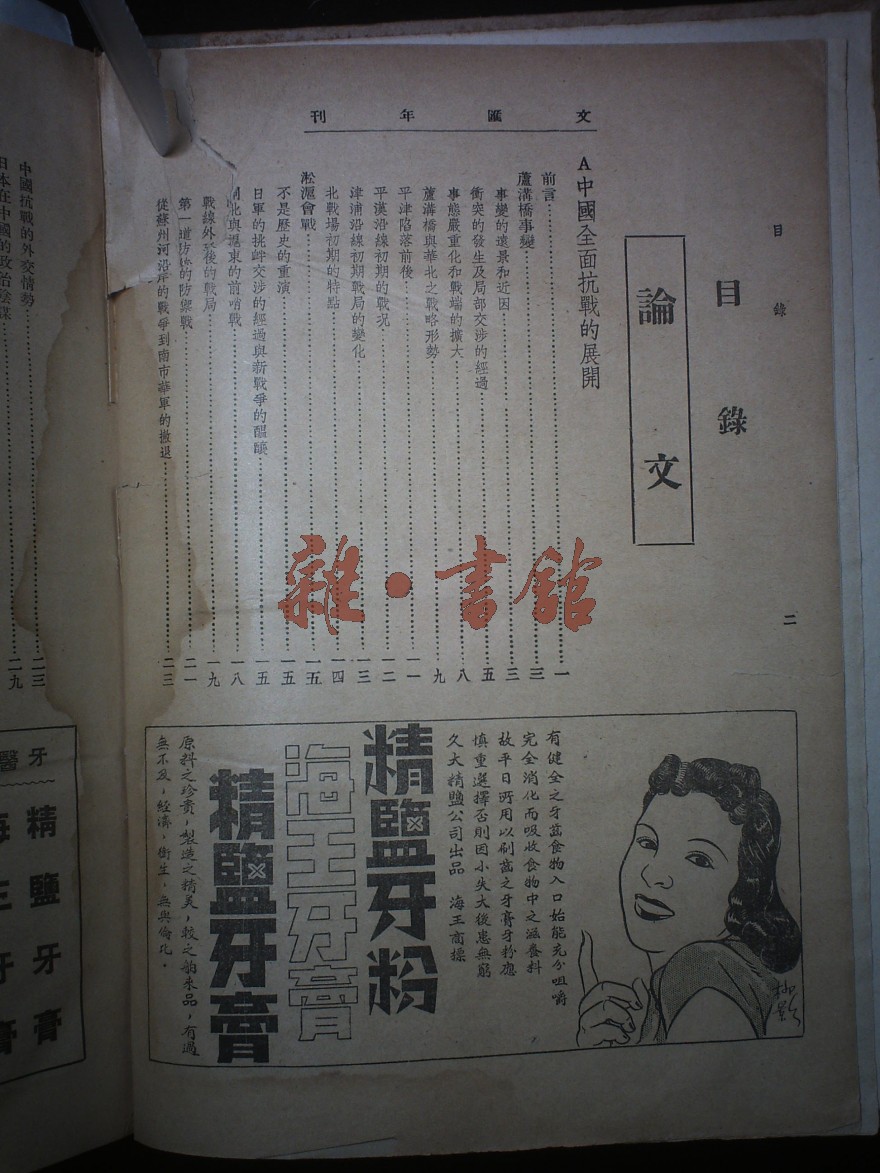 文匯年刊
目錄
二
目錄
論文
A中國全面抗戰的展開
前言 一
蘆溝橋事變 三
事變的遠景和近因 三
衝突的發生及局部交涉的經過 五
事態嚴重化和戰端的擴大 八
蘆溝橋與華北之戰略形勢 九
平津陷落前後 一一
平漢沿線初期的戰况 一二
津浦沿線初期戰局的變化 一三
北戰場初期的特點 一四
淞滬會戰 一五
不是歷史的重演 一五
日軍的挑衅交涉的經過與新戰爭的醞釀 一五
閘北與滬東的前哨戰 一八
戰線外 後的戰局 一九
第一道防 的防禦戰 二一
從蘇州河沿岸的戰爭到南市華軍的撤退 二三
有健全之牙齒食物入口始能充分咀嚼
完全消化而吸收食物中之滋養料
故平日所用以刷齒之牙膏牙粉應
慎重選擇否則因小失大後患無窮
久大精鹽公司出品 海王商標
精鹽牙粉
海王牙膏
精鹽牙膏
原料之珍貴，製造之精美，較之舶來品，有過
無不及，經濟，衛生，無與倫比。
柳影
雜·書館
中國抗戰的外交情勢 二三
日本在中國的政治陰謀 二九
牙醫
精鹽牙膏
海王牙膏